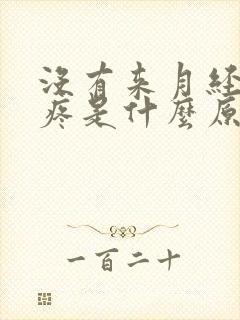 沒有来月经
疼是什麼原
一百二十